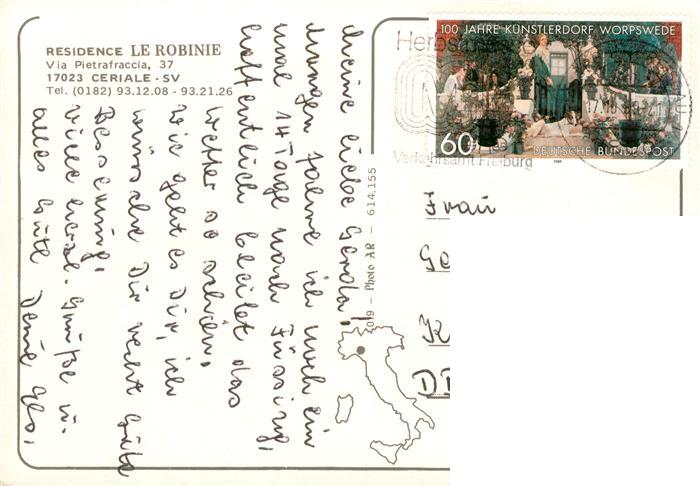 RESIDENCE LE ROBINIE
Via Pietrafraccia, 37
17023 CERIALE - SV
Tel. (0182) 93.12.08 - 93.21.26
Meine liebe Gerda!
Morgen fahre ich noch ein
mal 14 Tage nach Füssing,
hoffentlich bleibt das
Wetter so schön.
Wie geht es Dir, ich
wünsche Dir recht gute
Besserung.
Viele herzl. Grüße u.
alles Gute Deine
Photo AR - 614.155
100 JAHRE KÜNSTLERDORF WORPSWEDE
60
DEUTSCHE BUNDESPOST
1989
Herbs
Verkehrsamt Freiburg
Frau
Ge
K
D